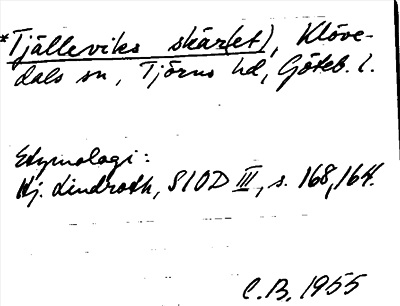 *Tjälleviks skär(et), Klöve-
dals sn, Tjörns hd, Göteb. l.
Etymologi:
Hj. Lindroth, SIOD III, s. 168, 164.
C.B. 1955